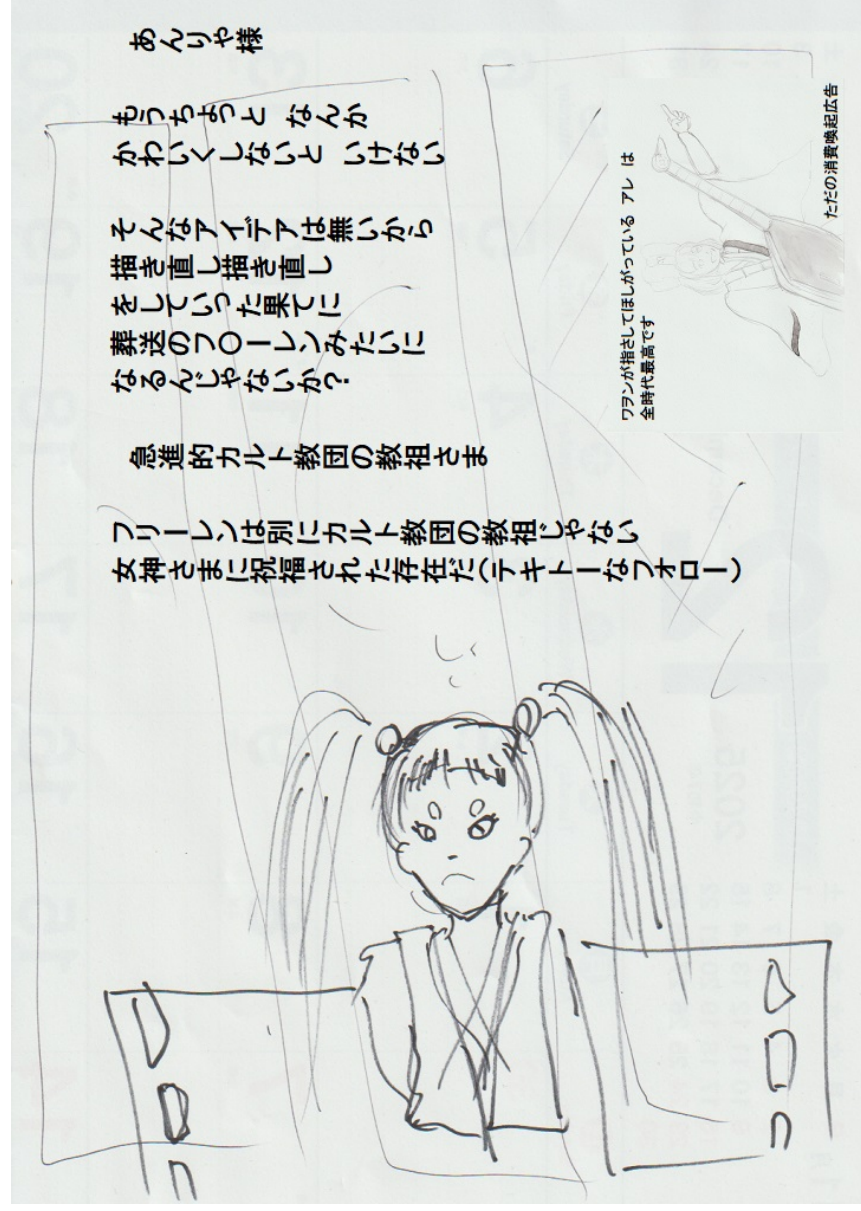 あんりや様
もうちょっと なんか
かわいくしないと いけない
そんなアイデアは無いから
描き直し描き直し
をしていった果てに
葬送のフ〇ーレンみたいに
なるんじゃないか?
急進的カルト教団の教祖さま
フリーレンは別にカルト教団の教祖じゃない
女神さまに祝福された存在だ(テキトーなフォロー)
ワヲンが指さしてほしがっている アレ は
全時代最高です
ただの消費喚起広告